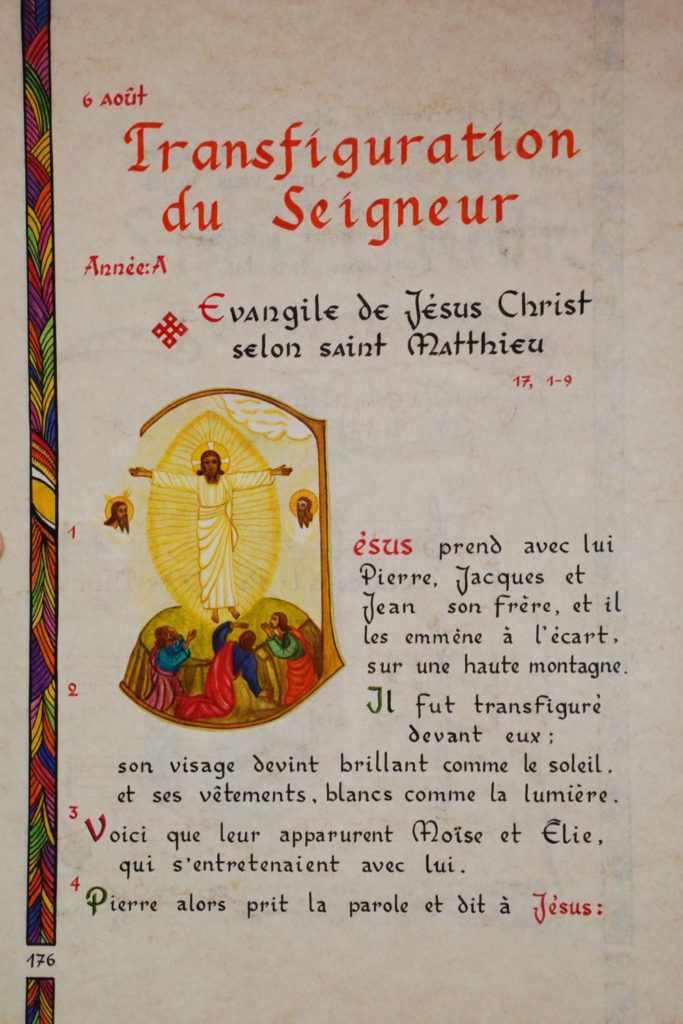 6 août
Transfiguration
du Seigneur
Année:A
Evangile de Jésus Christ
selon saint Matthieu
17, 1-9
1
ésus prend avec lui
Pierre, Jacques et
Jean son frère, et il
les emmène à l'écart,
sur une haute montagne.
2
Il fut transfiguré
devant eux;
son visage devint brillant comme le soleil,
et ses vêtements, blancs comme la lumière.
3
Voici que leur apparurent Moïse et Élie,
qui s'entretenaient avec lui.
4
Pierre alors prit la parole et dit à Jésus:
176